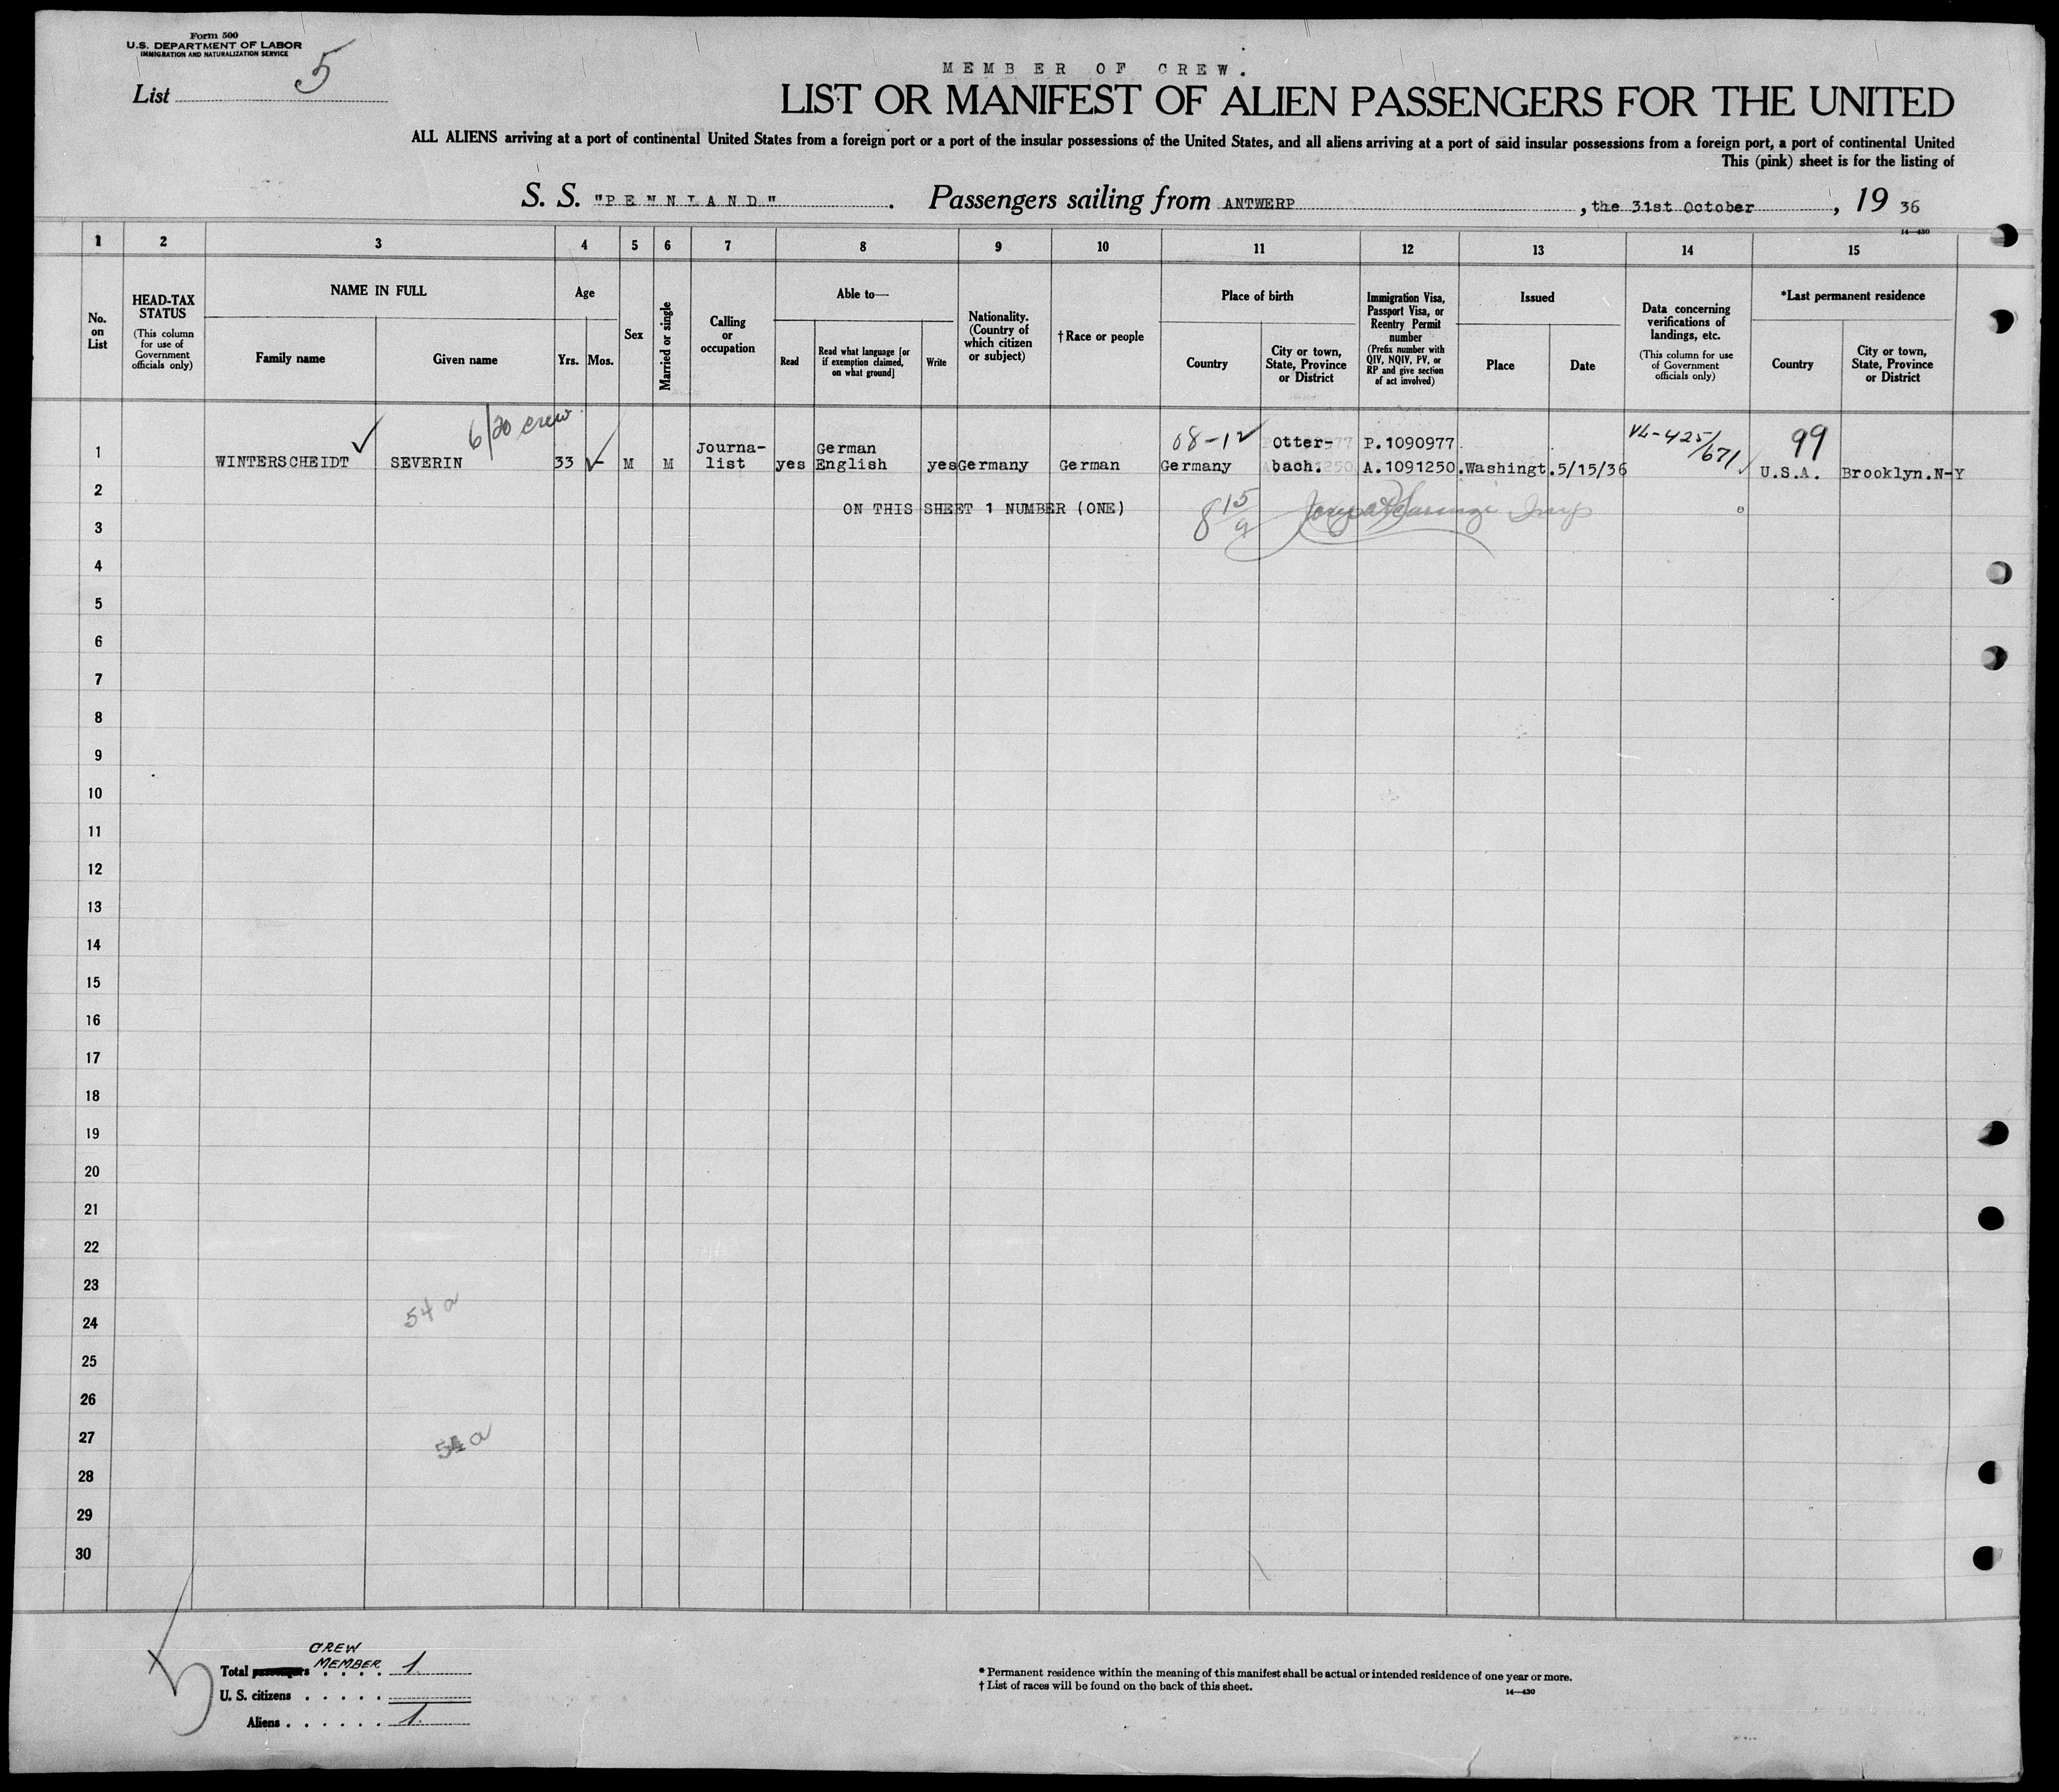 Form 500
U.S. DEPARTMENT OF LABOR
IMMIGRATION AND NATURALIZATION SERVICE
List 5
MEMBER OF CREW.
LIST OR MANIFEST OF ALIEN PASSENGERS FOR THE UNITED
ALL ALIENS arriving at a port of continental United States from a foreign port or a port of the insular possessions of the United States, and all aliens arriving at a port of said insular possessions from a foreign port, a port of continental United
This (pink) sheet is for the listing of
S. S. "PENNLAND". Passengers sailing from ANTWERP, the 31st October, 19 36
14—430
1 2 3 4 5 6 7 8 9 10 11 12 13 14 15
No. on List
HEAD-TAX STATUS
(This column for use of Government officials only)
NAME IN FULL
Family name
Given name
Age
Yrs.
Mos.
Sex
Married or single
Calling or occupation
Able to—
Read
Read what language [or if exemption claimed, on what ground]
Write
Nationality. (Country of which citizen or subject)
† Race or people
Place of birth
Country
City or town, State, Province or District
Immigration Visa, Passport Visa, or Reentry Permit number
(Prefix number with QIV, NQIV, PV, or RP and give section of act involved)
Issued
Place
Date
Data concerning verifications of landings, etc.
(This column for use of Government officials only)
*Last permanent residence
Country
City or town, State, Province or District
6/20 crew
08-12
VL-425/671
99
Journa- German Otter- P.1090977
1 WINTERSCHEIDT SEVERIN 33 M M list yes English yes Germany German Germany bach. A.1091250. Washingt. 5/15/36 U.S.A. Brooklyn.N-Y
2
ON THIS SHEET 1 NUMBER (ONE)
3
4
5
6
7
8
9
10
11
12
13
14
15
16
17
18
19
20
21
22
23
24
54 a
25
26
27
54 a
28
29
30
CREW
Total passengers MEMBER . . . . 1
U. S. citizens . . . . .
Aliens . . . . . . 1.
* Permanent residence within the meaning of this manifest shall be actual or intended residence of one year or more.
† List of races will be found on the back of this sheet.
14—430